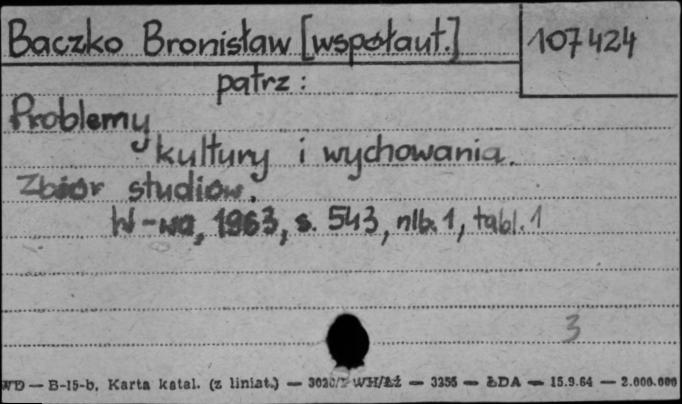 Baczko Bronisław [współaut.]
107424
patrz:
Problemy
kultury i wychowania.
Zbiór studiów.
W-wa, 1963, s. 543, nlb. 1, tabl. 1
3
WD — B-15-b, Karta katal. (z liniat.) — 3020/ WH/Łż — 3255 — ŁDA — 15.9.64 — 2.000.000